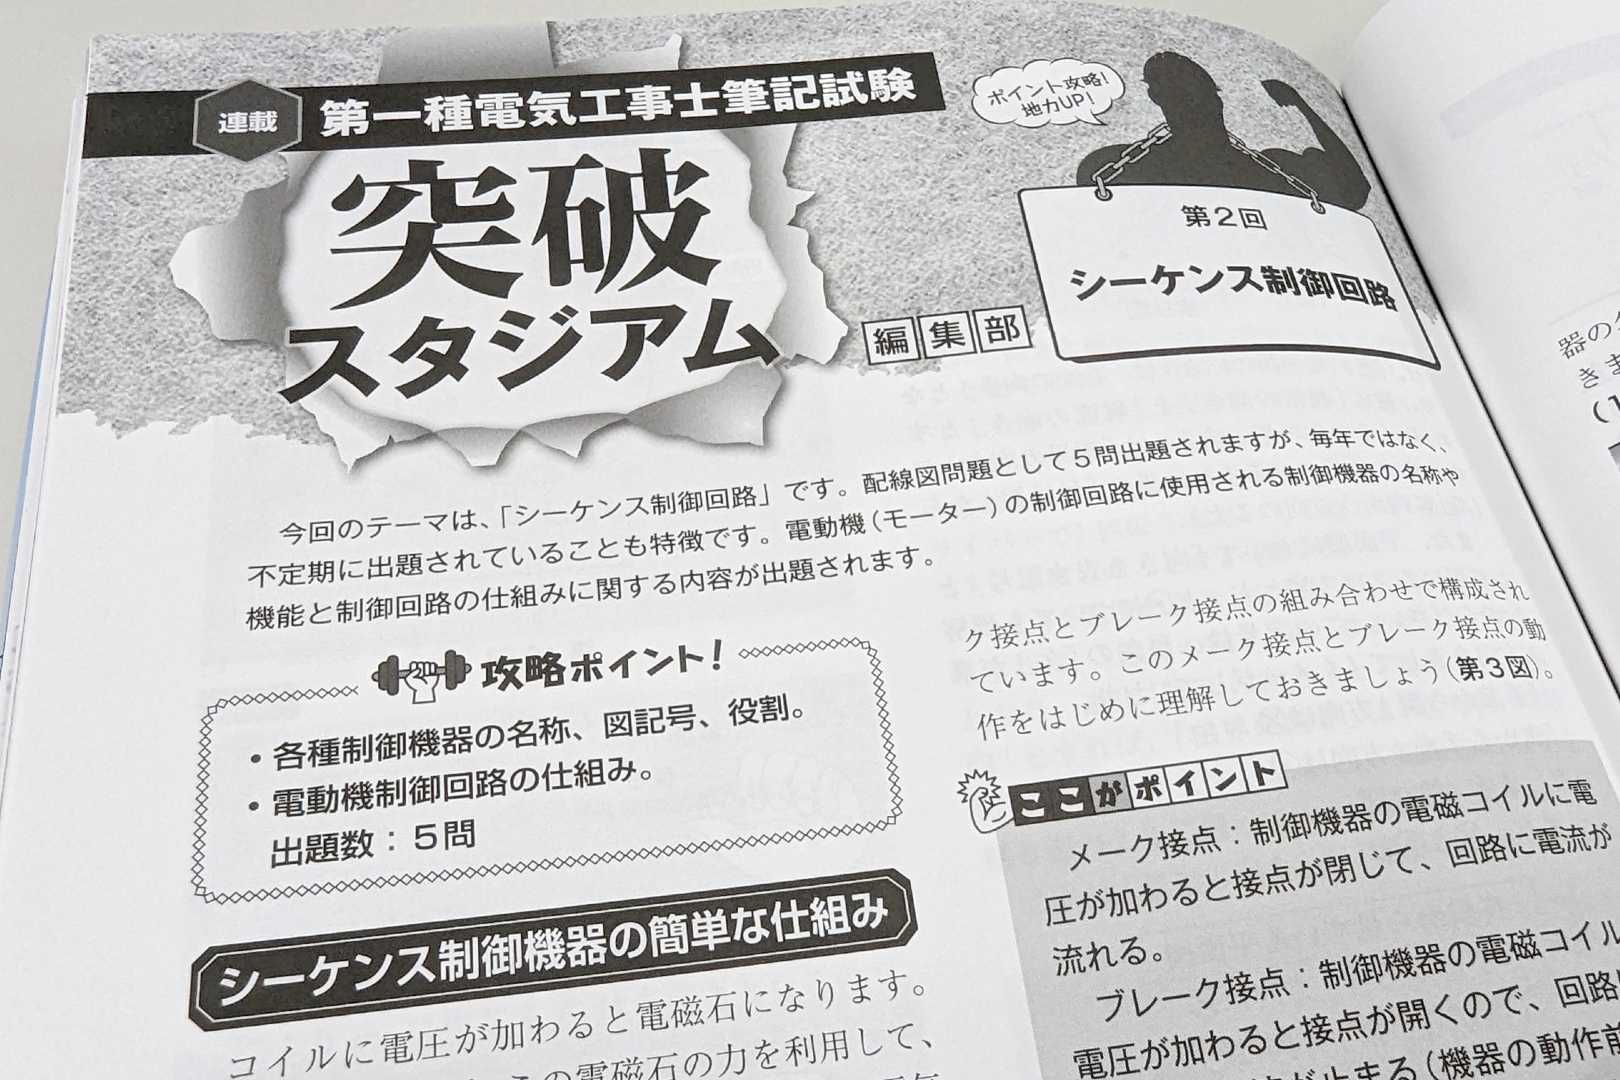 連載
第一種電気工事士筆記試験
突破
スタジアム
編集部
ポイント攻略！
地力UP！
第2回
シーケンス制御回路
今回のテーマは、「シーケンス制御回路」です。配線図問題として5問出題されますが、毎年ではなく、
不定期に出題されていることも特徴です。電動機（モーター）の制御回路に使用される制御機器の名称や
機能と制御回路の仕組みに関する内容が出題されます。
攻略ポイント！
・各種制御機器の名称、図記号、役割。
・電動機制御回路の仕組み。
出題数：5問
シーケンス制御機器の簡単な仕組み
コイルに電圧が加わると電磁石になります。
の電磁石の力を利用して、
ク接点とブレーク接点の組み合わせで構成され
ています。このメーク接点とブレーク接点の動
作をはじめに理解しておきましょう（第3図）。
ここがポイント
メーク接点：制御機器の電磁コイルに電
圧が加わると接点が閉じて、回路に電流が
流れる。
ブレーク接点：制御機器の電磁コイル
電圧が加わると接点が開くので、回路
が止まる（機器の動作前
器の
きま
(1